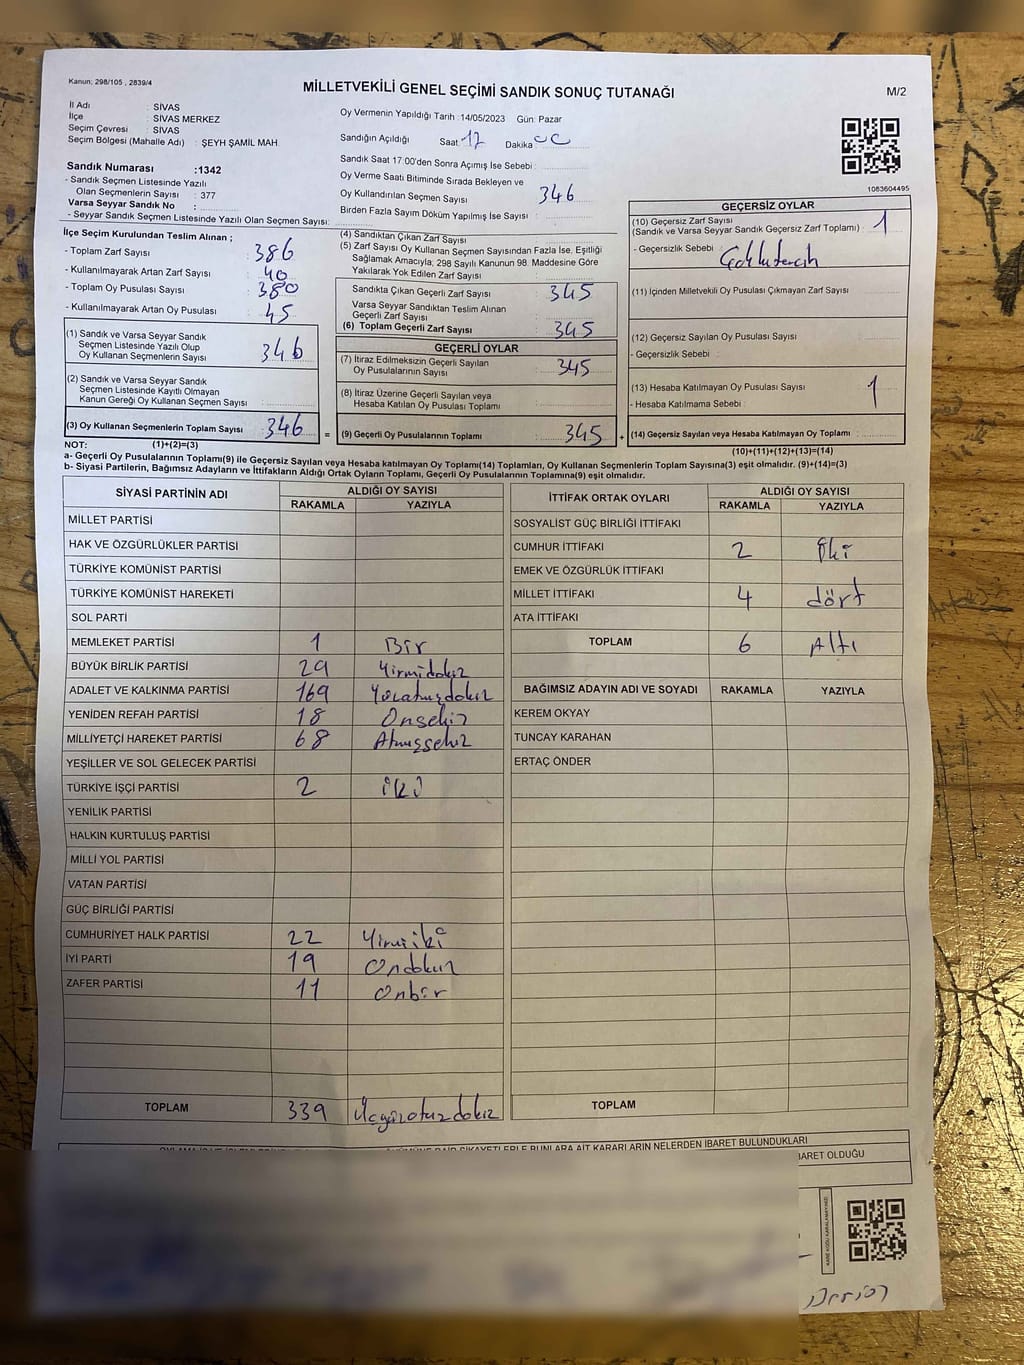 Kanun; 298/105 , 2839/4
MİLLETVEKİLİ GENEL SEÇİMİ SANDIK SONUÇ TUTANAĞI
M/2
İl Adı : SİVAS
İlçe : SİVAS MERKEZ
Seçim Çevresi : SİVAS
Seçim Bölgesi (Mahalle Adı) : ŞEYH ŞAMİL MAH
Sandık Numarası :1342
- Sandık Seçmen Listesinde Yazılı
Olan Seçmenlerin Sayısı : 377
Varsa Seyyar Sandık No :
- Seyyar Sandık Seçmen Listesinde Yazılı Olan Seçmen Sayısı:
Oy Vermenin Yapıldığı Tarih :14/05/2023 Gün: Pazar
Sandığın Açıldığı Saat 17 Dakika
Sandık Saat 17:00'den Sonra Açımış İse Sebebi :
Oy Verme Saati Bitiminde Sırada Bekleyen ve
Oy Kullandırılan Seçmen Sayısı 346
Birden Fazla Sayım Döküm Yapılmış İse Sayısı :
1083604495
İlçe Seçim Kurulundan Teslim Alınan ;
- Toplam Zarf Sayısı : 386
- Kullanılmayarak Artan Zarf Sayısı : 40
- Toplam Oy Pusulası Sayısı : 380
- Kullanılmayarak Artan Oy Pusulası : 45
(1) Sandık ve Varsa Seyyar Sandık
Seçmen Listesinde Yazılı Olup
Oy Kullanan Seçmenlerin Sayısı 346
(2) Sandık ve Varsa Seyyar Sandık
Seçmen Listesinde Kayıtlı Olmayan
Kanun Gereği Oy Kullanan Seçmen Sayısı :
(3) Oy Kullanan Seçmenlerin Toplam Sayısı : 346
(4) Sandıktan Çıkan Zarf Sayısı :
(5) Zarf Sayısı Oy Kullanan Seçmen Sayısından Fazla İse, Eşitliği
Sağlamak Amacıyla; 298 Sayılı Kanunun 98. Maddesine Göre
Yakılarak Yok Edilen Zarf Sayısı :
Sandıkta Çıkan Geçerli Zarf Sayısı : 345
Varsa Seyyar Sandıktan Teslim Alınan
Geçerli Zarf Sayısı :
(6) Toplam Geçerli Zarf Sayısı : 345
GEÇERLİ OYLAR
(7) İtiraz Edilmeksizin Geçerli Sayılan
Oy Pusulalarının Sayısı : 345
(8) İtiraz Üzerine Geçerli Sayılan veya
Hesaba Katılan Oy Pusulası Toplamı :
= (9) Geçerli Oy Pusulalarının Toplamı : 345 +
GEÇERSİZ OYLAR
(10) Geçersiz Zarf Sayısı
(Sandık ve Varsa Seyyar Sandık Geçersiz Zarf Toplamı) : 1
- Geçersizlik Sebebi :
(11) İçinden Milletvekili Oy Pusulası Çıkmayan Zarf Sayısı :
(12) Geçersiz Sayılan Oy Pusulası Sayısı :
- Geçersizlik Sebebi :
(13) Hesaba Katılmayan Oy Pusulası Sayısı : 1
- Hesaba Katılmama Sebebi :
(14) Geçersiz Sayılan veya Hesaba Katılmayan Oy Toplamı :
NOT: (1)+(2)=(3)
(10)+(11)+(12)+(13)=(14)
a- Geçerli Oy Pusulalarının Toplamı(9) ile Geçersiz Sayılan veya Hesaba katılmayan Oy Toplamı(14) Toplamları, Oy Kullanan Seçmenlerin Toplam Sayısına(3) eşit olmalıdır. (9)+(14)=(3)
b- Siyasi Partilerin, Bağımsız Adayların ve İttifakların Aldığı Ortak Oyların Toplamı, Geçerli Oy Pusulalarının Toplamına(9) eşit olmalıdır.
SİYASİ PARTİNİN ADI ALDIĞI OY SAYISI
RAKAMLA YAZIYLA
MİLLET PARTİSİ
HAK VE ÖZGÜRLÜKLER PARTİSİ
TÜRKİYE KOMÜNİST PARTİSİ
TÜRKİYE KOMÜNİST HAREKETİ
SOL PARTİ
MEMLEKET PARTİSİ 1 Bir
BÜYÜK BİRLİK PARTİSİ 29 Yirmidokuz
ADALET VE KALKINMA PARTİSİ 169 Yüzatmışdokuz
YENİDEN REFAH PARTİSİ 18 Onsekiz
MİLLİYETÇİ HAREKET PARTİSİ 68 Atmışsekiz
YEŞİLLER VE SOL GELECEK PARTİSİ
TÜRKİYE İŞÇİ PARTİSİ 2 iki
YENİLİK PARTİSİ
HALKIN KURTULUŞ PARTİSİ
MİLLİ YOL PARTİSİ
VATAN PARTİSİ
GÜÇ BİRLİĞİ PARTİSİ
CUMHURİYET HALK PARTİSİ 22 Yirmiiki
İYİ PARTİ 19 Ondokuz
ZAFER PARTİSİ 11 Onbir
TOPLAM 339 Üçyüzotuzdokuz
İTTİFAK ORTAK OYLARI ALDIĞI OY SAYISI
RAKAMLA YAZIYLA
SOSYALİST GÜÇ BİRLİĞİ İTTİFAKI
CUMHUR İTTİFAKI 2 İki
EMEK VE ÖZGÜRLÜK İTTİFAKI
MİLLET İTTİFAKI 4 dört
ATA İTTİFAKI
TOPLAM 6 Altı
BAĞIMSIZ ADAYIN ADI VE SOYADI RAKAMLA YAZIYLA
KEREM OKYAY
TUNCAY KARAHAN
ERTAÇ ÖNDER
TOPLAM
ŞİKAYETLERLE BUNLARA AİT KARARLARIN NELERDEN İBARET BULUNDUKLARI
BARET OLDUĞU